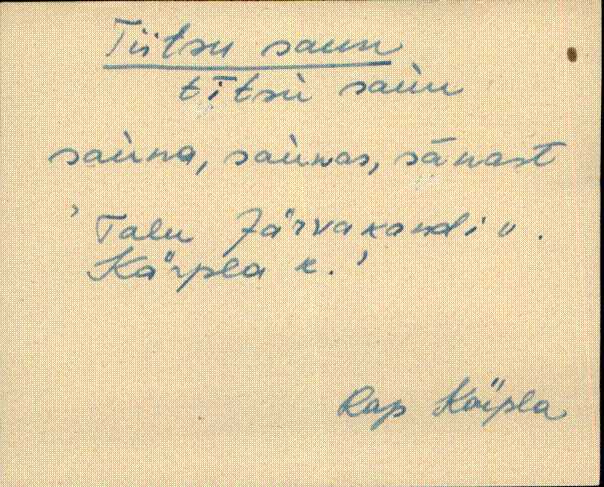 Tiitsu saun
tītsù saùn
saùna, saùnas, sānast
'Talu Järvakandi v.
Kärpla k.'
Rap Käïpla